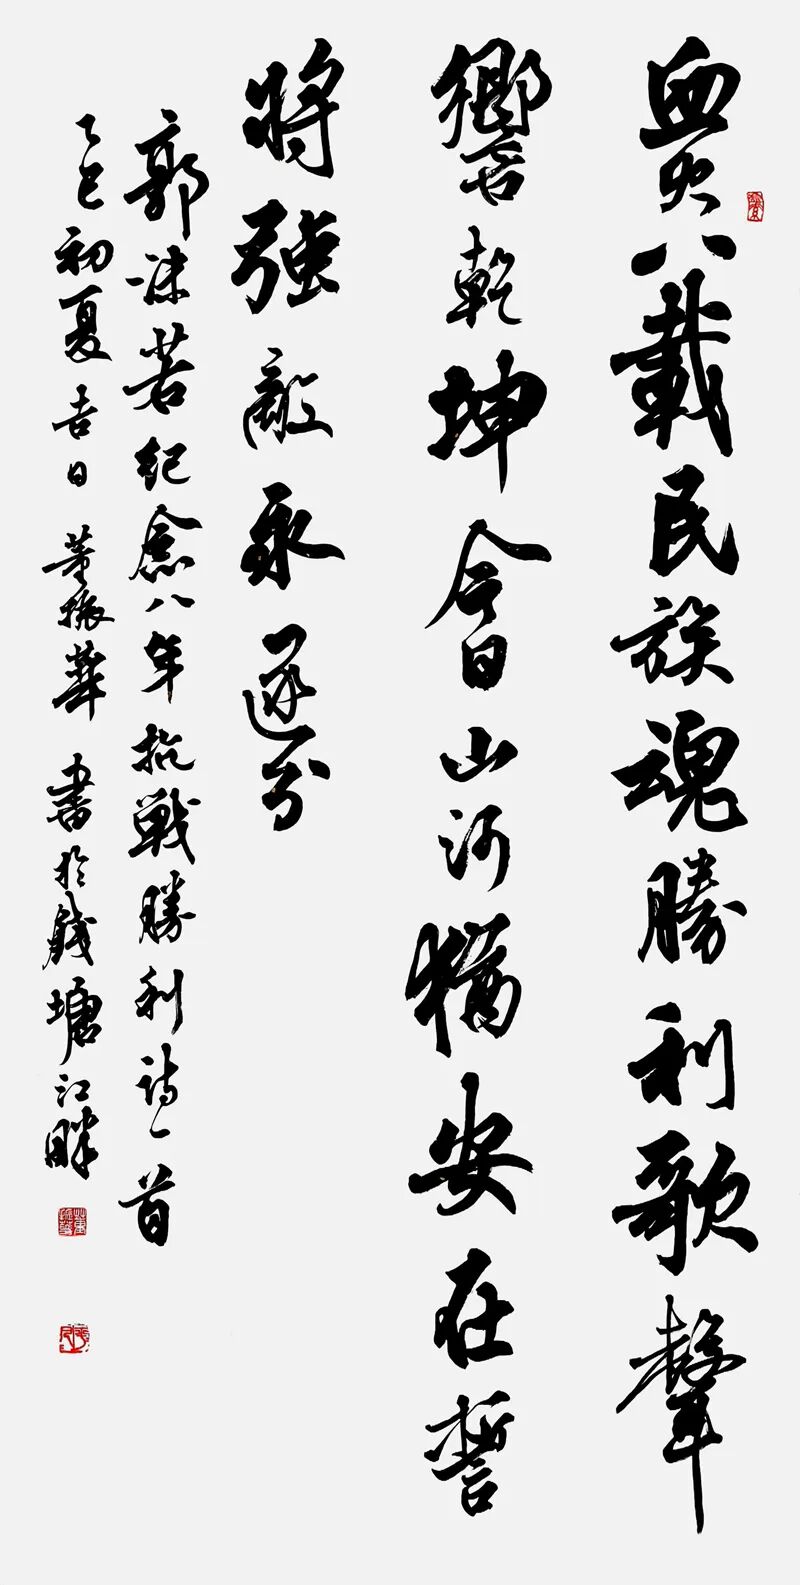 血火八載民族魂勝利歌聲
響乾坤今日山河猶安在誓
將強敵永逐分
郭沫若紀念八年抗戰勝利詩一首
乙巳初夏吉日 董振華 書於錢塘江畔